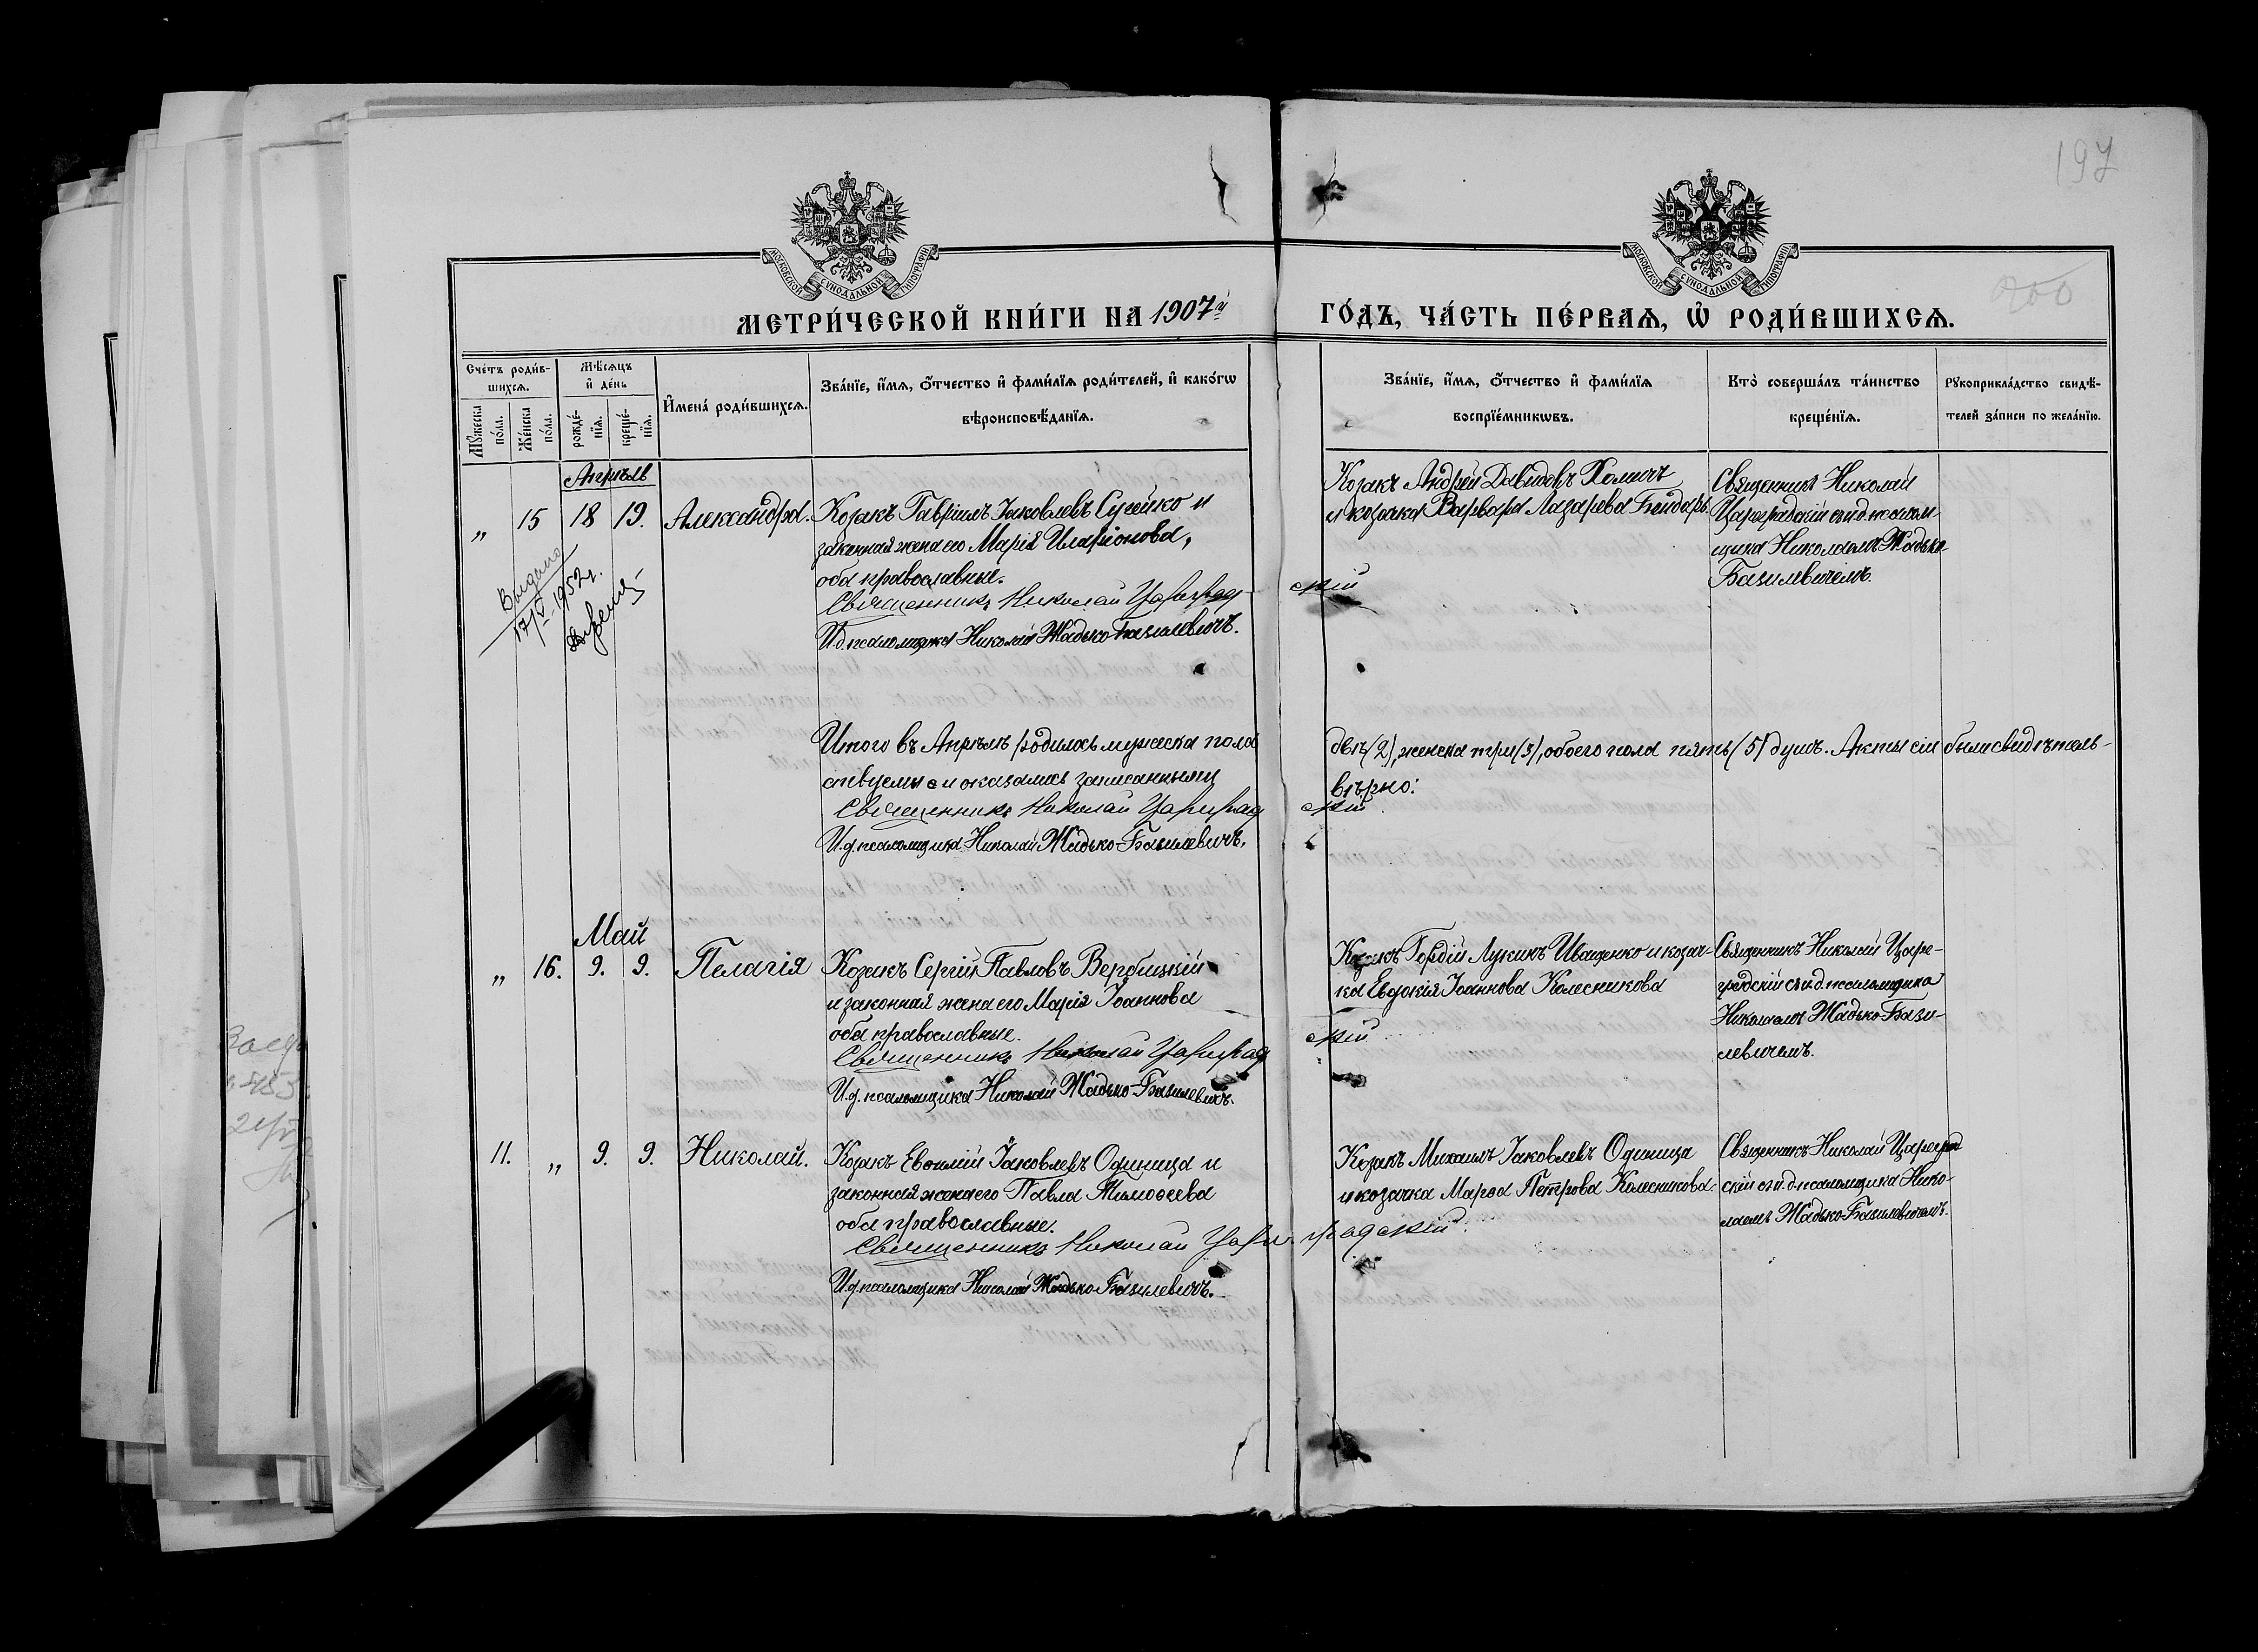 197
200
МОСКОВСКОЙ СѴНОДАЛЬНОЙ ТИПОГРАФІИ
МОСКОВСКОЙ СѴНОДАЛЬНОЙ ТИПОГРАФІИ
МЕТРИ́ЧЕСКОЙ КНИ́ГИ НА 1907й ГО́ДЪ, ЧА́СТЬ ПЕ́РВАѦ, Ѡ҆ РОДИ́ВШИХСѦ.
Сче́тъ роди́в-
шихсѧ.
Мѣ́сѧцъ
и҆ де́нь
Мꙋжеска по́ла.
Же́нска по́ла.
рожде́-
нїѧ.
креще́-
нїѧ.
И҆мена̀ роди́вшихсѧ.
Зва́нїе, и҆́мѧ, ѻ҆́тчество и҆ фами́лїѧ роди́телей, и҆ како́гѡ
вѣроисповѣ́данїѧ.
Зва́нїе, и҆́мѧ, ѻ҆́тчество и҆ фами́лїѧ
воспрїе́мникѡвъ.
Кто̀ соверша́лъ та́инство
креще́нїѧ.
Рꙋкоприкла́дство свидѣ́-
телей за́писи по жела́нїю.
Апрѣль
„ 15 18 19. Александра.
Козакъ Гавріилъ Іаковлевъ и
законная жена его Марія Иларіонова,
оба православные.
Священникъ Николай Цариградскій
И.д. псаломщика Николай Жадько-Базилевичъ.
Козакъ Андрей Давидовъ Хомичъ
и козачка Варвара Лазарева Бондарь
Священникъ Николай
Цареградскій с и.д. псалом-
щика Николаемъ Жадько-
Базилевичемъ.
Выдано
17/V-1952г.
Итого въ Апрѣлѣ родилось мужеска пола двѣ (2), женска три (3), обоего пола пять (5) душъ. Акты сіи были свидѣтель-
ствуемы и оказались записанными вѣрно:
Священникъ Николай Цариградскій
И.д. псаломщика Николай Жадько-Базилевичъ.
Май
„ 16. 9. 9. Пелагія
Козакъ Сергій Павловъ Вербицкій
и законная жена его Марія Іоаннова
оба православные.
Священникъ Николай Цариградскій
И.д. псаломщика Николай Жадько-Базилевичъ.
Козакъ Гордій Лукинъ Иващенко и козач-
ка Евдокія Іоаннова Колесникова
Священникъ Николай Царе-
градскій с и.д. псаломщика
Николаемъ Жадько-Бази-
левичемъ.
11. „ 9. 9. Николай.
Козакъ Евѳимій Іаковлевъ Одиница и
законная жена его Павла Тимоѳеева
оба православные.
Священникъ Николай Цариградскій
И.д. псаломщика Николай Жадько-Базилевичъ.
Козакъ Михаилъ Іаковлевъ Одиница
и козачка Марѳа Петрова Колесникова.
Священникъ Николай Цареград
скій с и.д. псаломщика Нико-
лаемъ Жадько-Базилевичемъ.